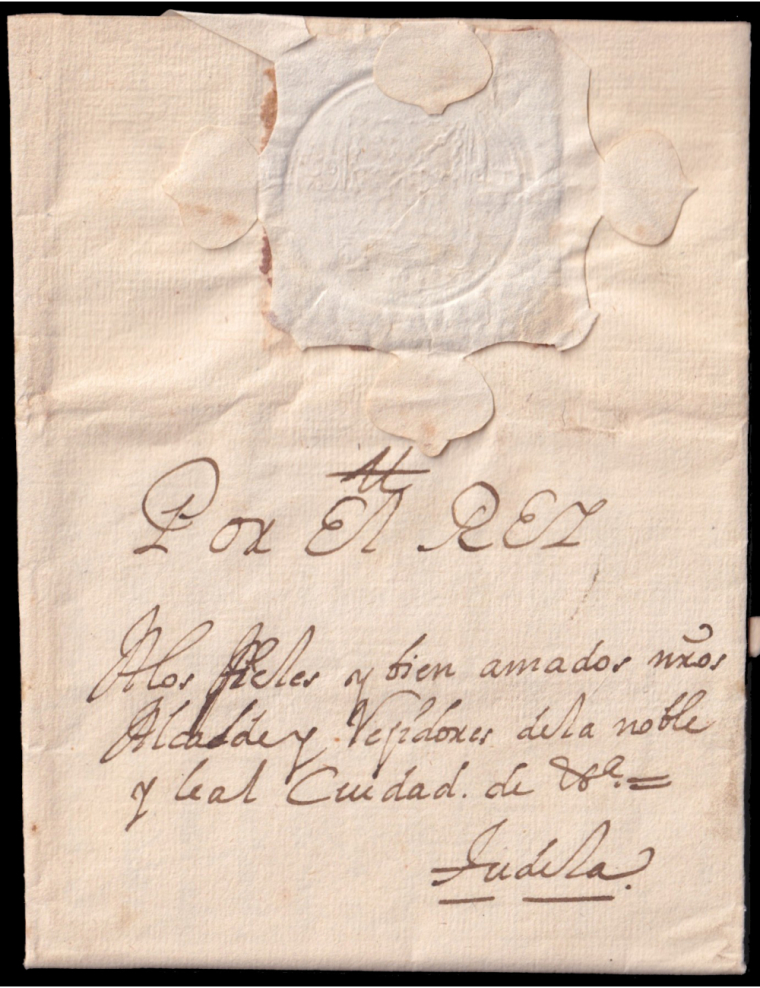 Por El REY
A los fieles y bien amados nr̃os
Alcalde y Regidores de la noble
y leal Ciudad. de
Tudela.